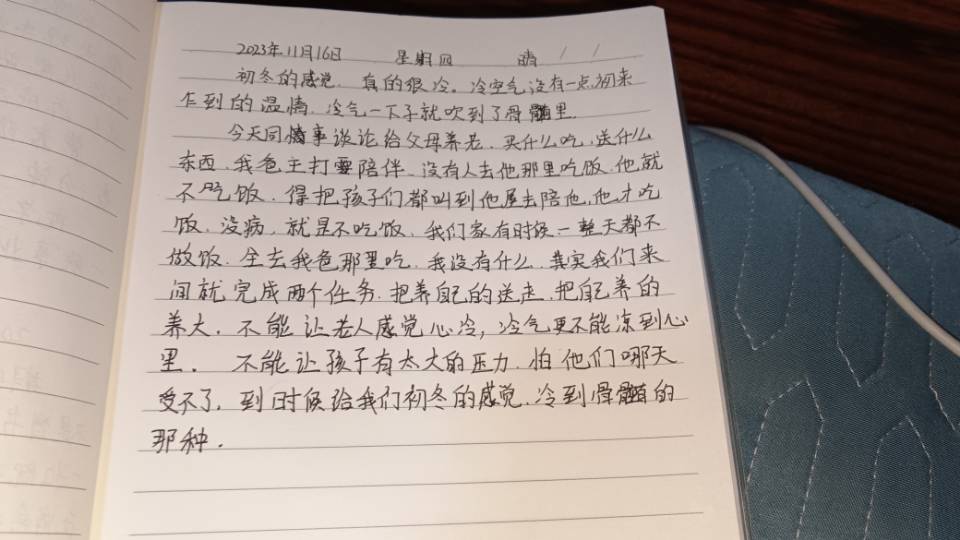 2023年11月16日 星期四 晴
初冬的感觉. 真的很冷。冷空气没有一点初来
乍到的温情. 冷气一下子就吹到了骨髓里.
今天同情事谈论给父母养老. 买什么吃. 送什么
东西. 我爸主打要陪伴. 没有人去他那里吃饭. 他就
不吃饭. 得把孩子们都叫到他屋去陪他. 他才吃
饭. 没病. 就是不吃饭. 我们家有时候一整天都不
做饭. 全去我爸那里吃. 我没有什么. 其实我们来
间就完成两个任务. 把养自己的送走. 把自己养的
养大. 不能让老人感觉心冷, 冷气更不能冻到心
里. 不能让孩子有太大的压力. 怕他们哪天
受不了. 到时候给我们初冬的感觉. 冷到骨髓的
那种.